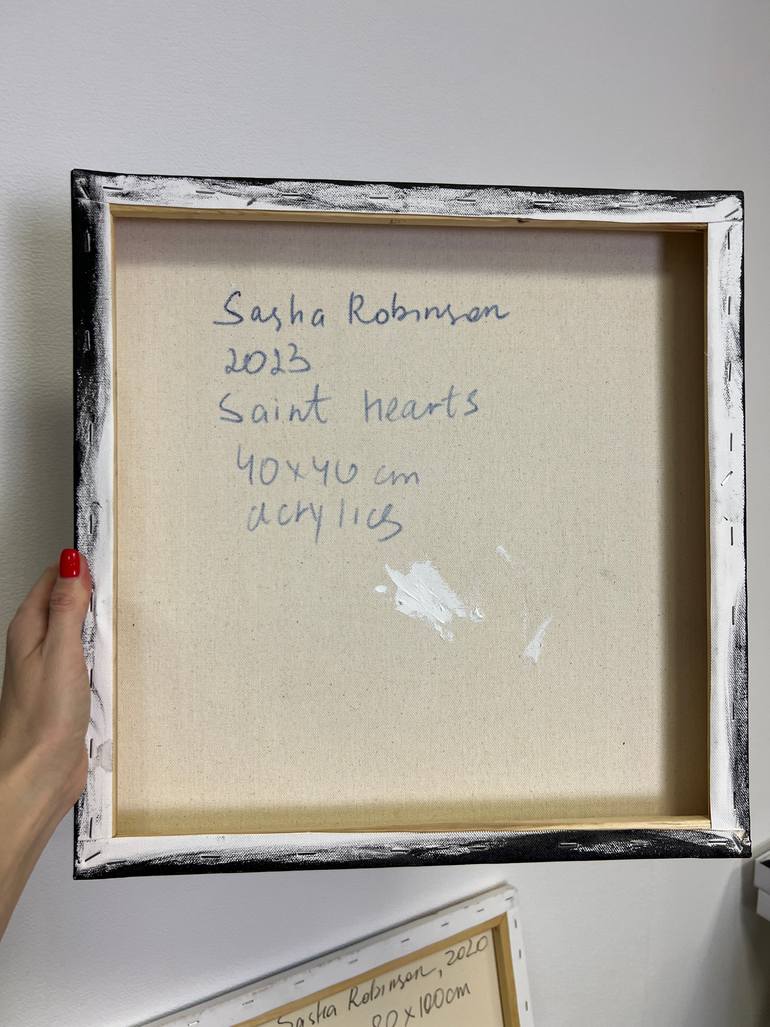 Sasha Robinson
2023
Saint hearts
40x40 cm
acrylics
Sasha Robinson, 2020
80x100cm